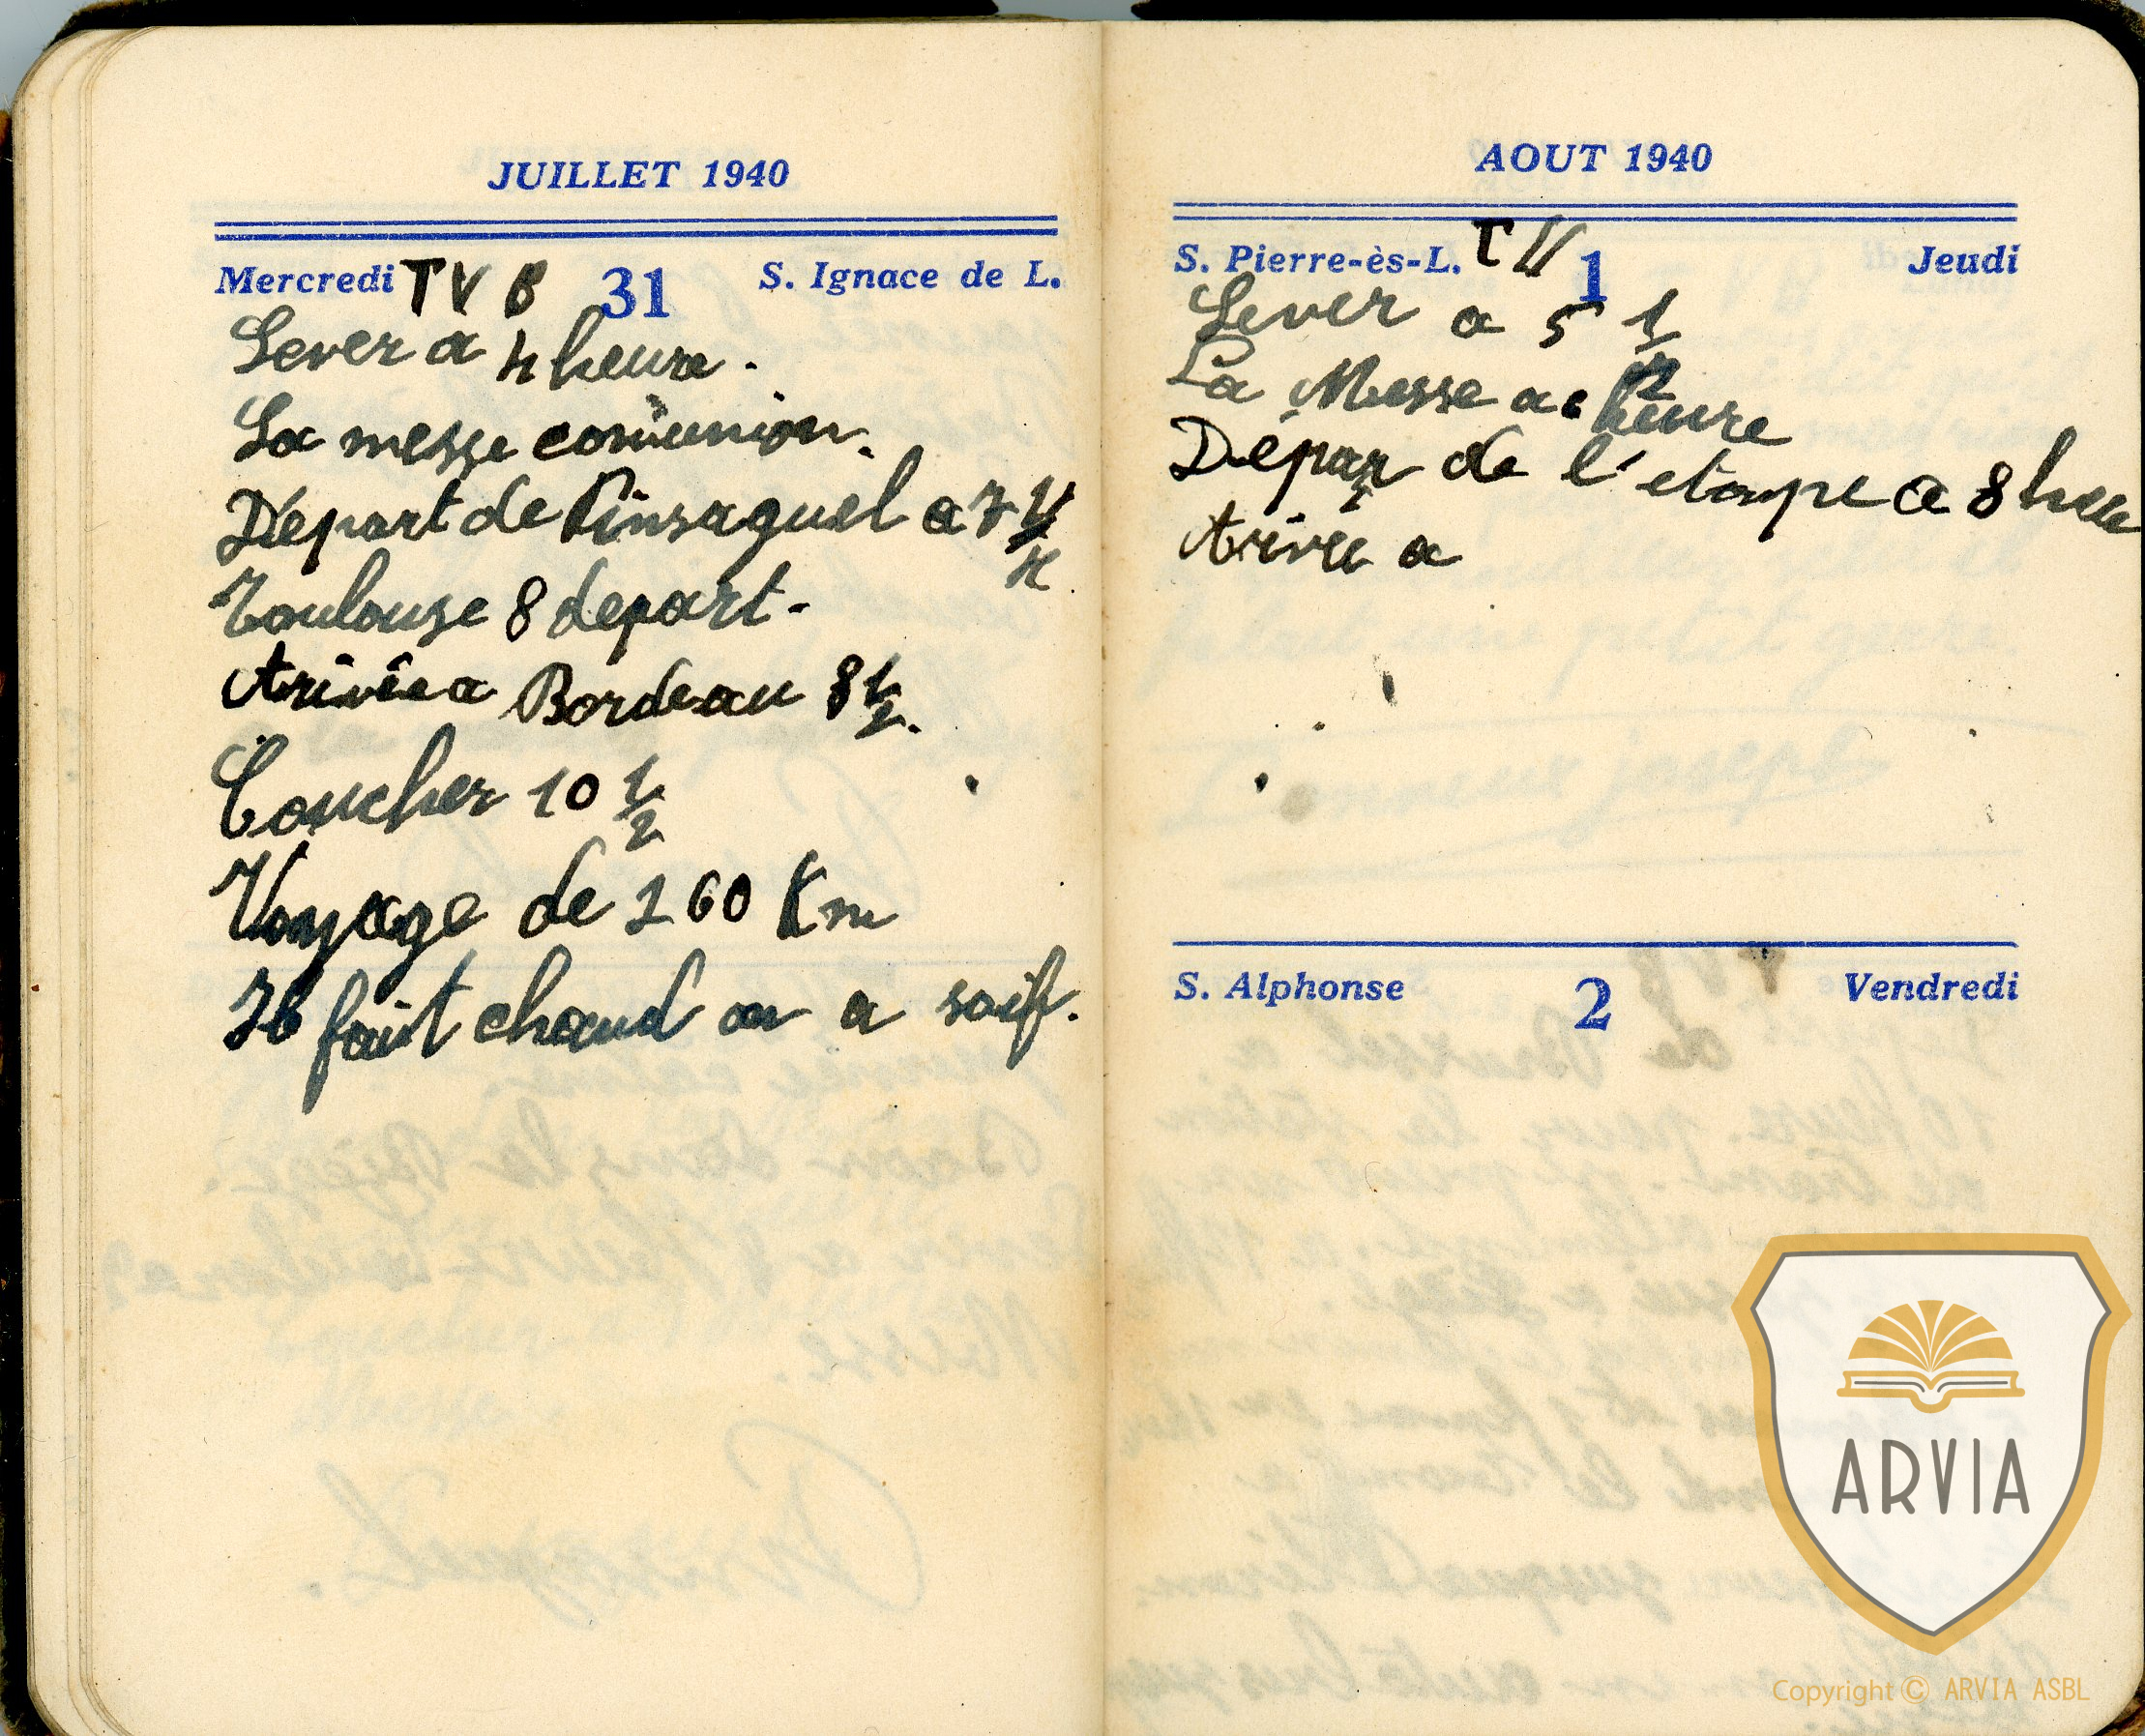 JUILLET 1940
Mercredi TVB 31 S. Ignace de L.
Lever a 4 heure.
La messe comunion.
Départ de Pinsaguel a 7 1/4
Toulouse 8 depart.
Arivée a Bordeau 8 1/2.
Coucher 10 1/2
Voyage de 260 Km
Il fait chaud on a soif.
AOUT 1940
S. Pierre-ès-L. TV 1 Jeudi
Lever a 5 1/2
La Messe a 6 heure
Départ de l'etape a 8 heu
Arivée a
S. Alphonse 2 Vendredi
ARVIA
Copyright © ARVIA ASBL